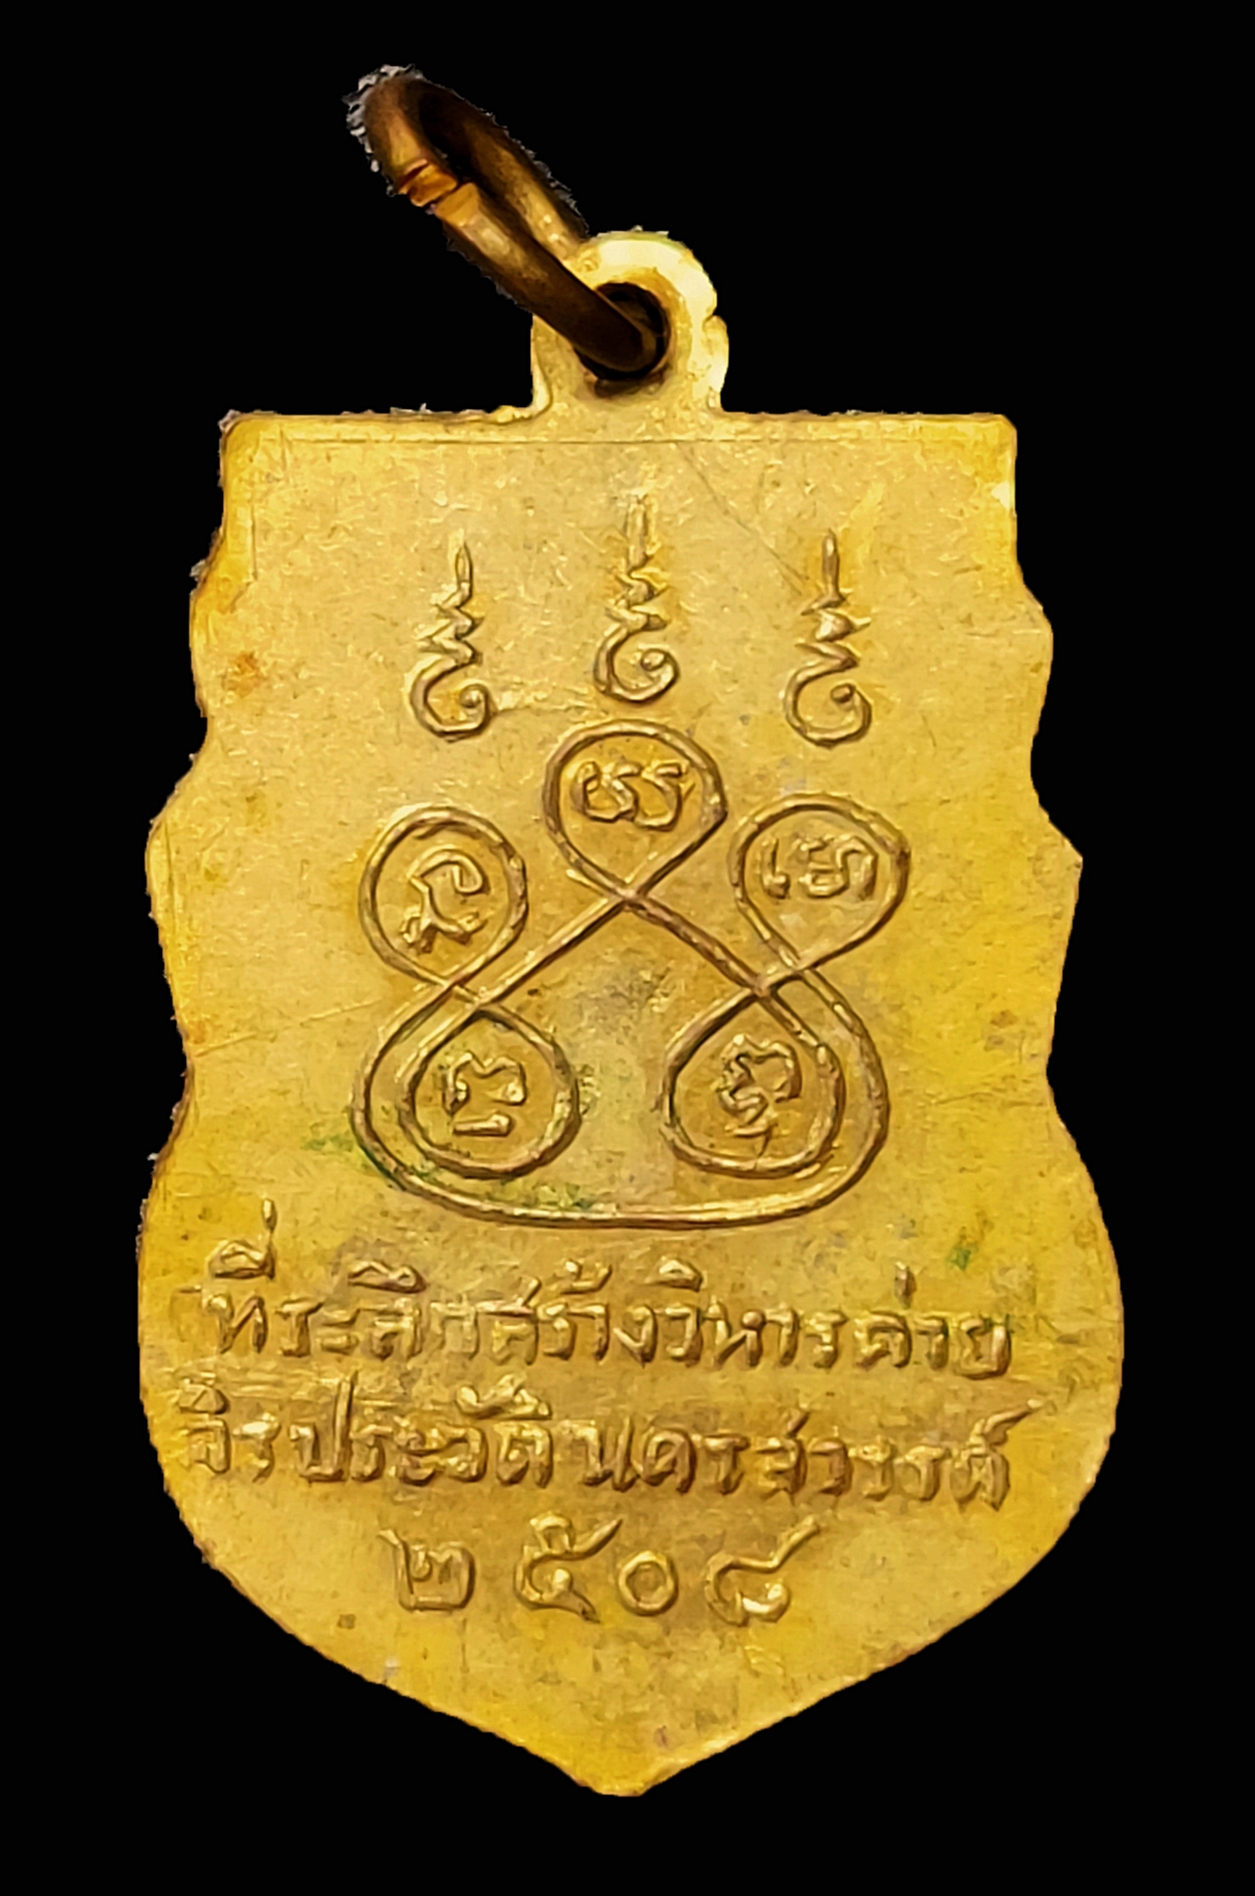 ที่ระลึกสร้างวิหารค่าย
จิรประวัติ นครสวรรค์
๒๕๐๘